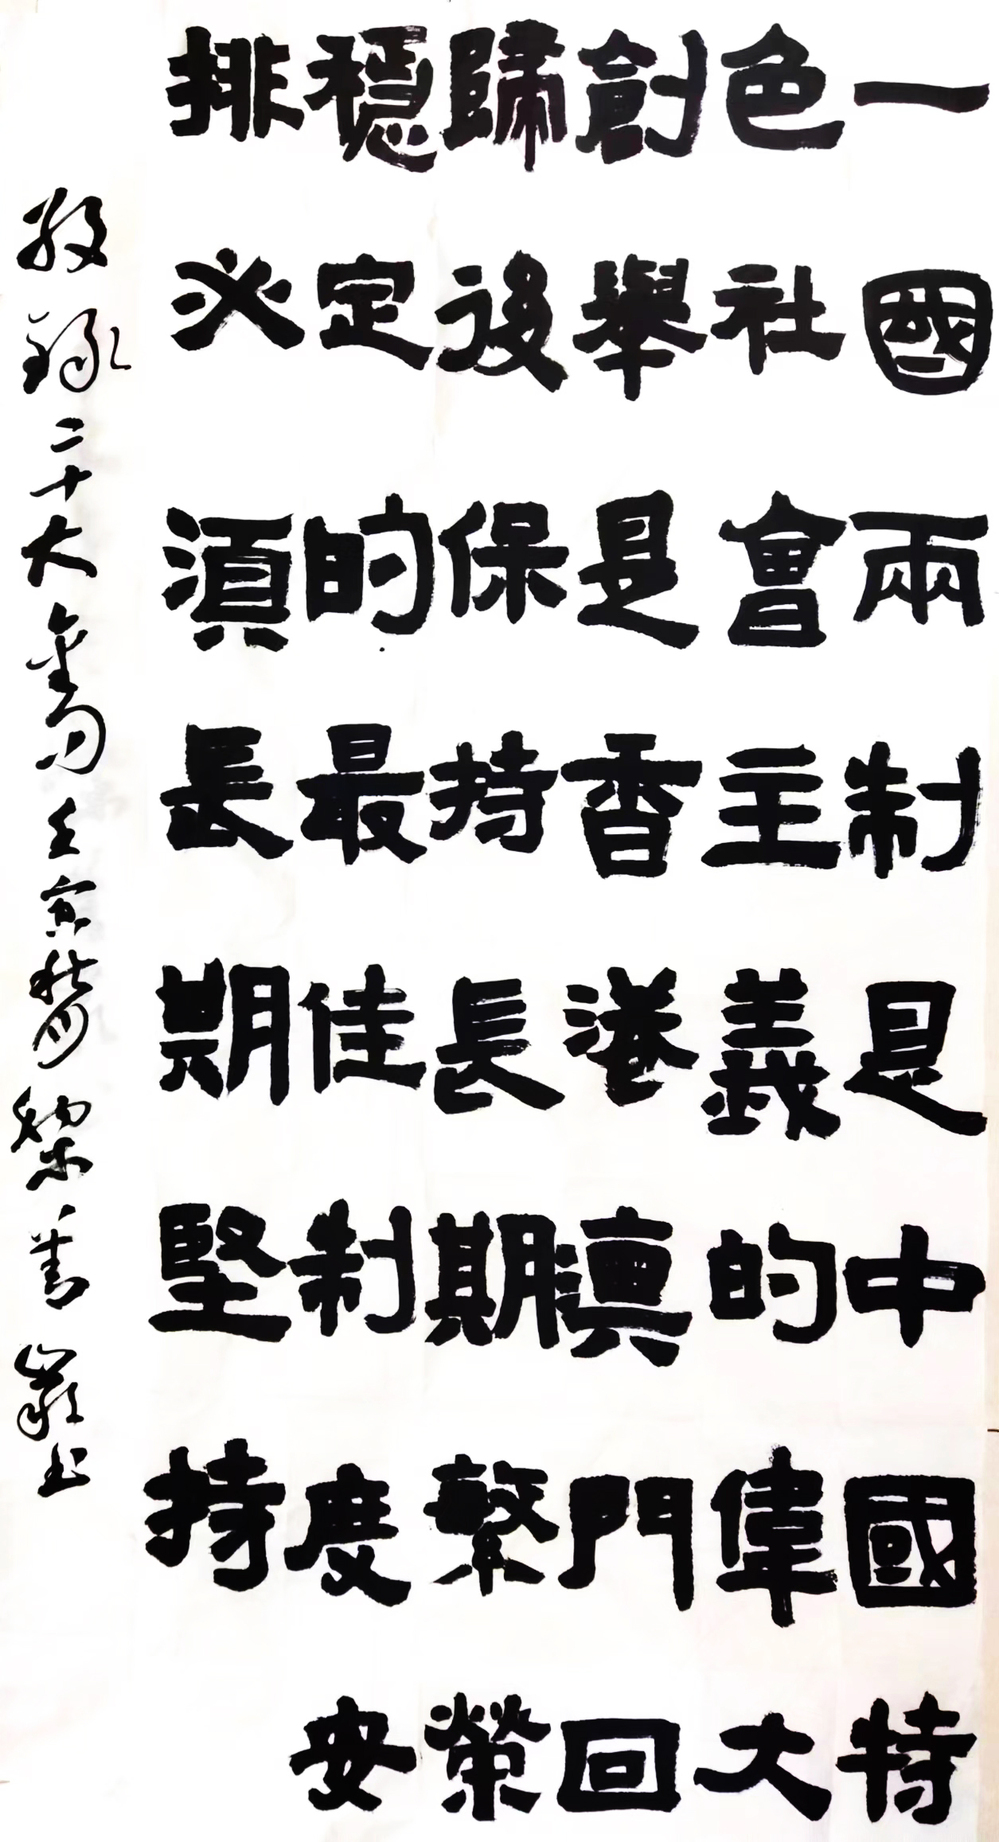 一國兩制是中國特
色社會主義的偉大
創舉是香港澳門回
歸後保持長期繁榮
穩定的最佳制度安
排必須長期堅持
敬錄二十大金句壬寅秋月黎書